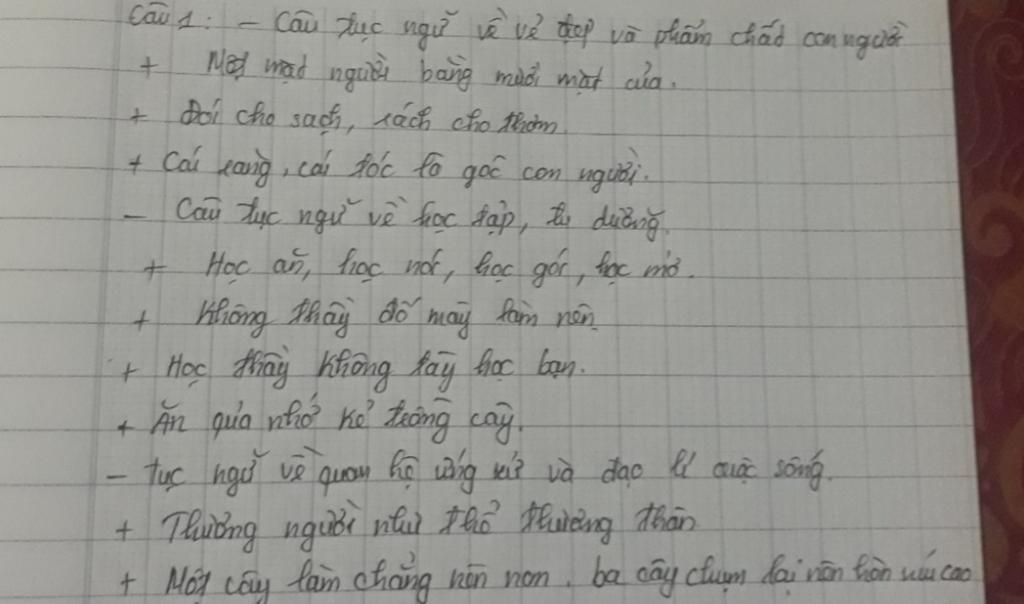 Câu 1: - Câu tục ngữ về vẻ đẹp và phẩm chất con người
+ Một mặt người bằng mười mặt của.
+ Đói cho sạch, rách cho thơm
+ Cái răng, cái tóc là góc con người.
- Câu tục ngữ về học tập, tu dưỡng.
+ Học ăn, học nói, học gói, học mở.
+ Không thầy đố mày làm nên.
+ Học thầy không tày học bạn.
+ Ăn quả nhớ kẻ trồng cây.
- tục ngữ về quan hệ ứng xử và đạo lí cuộc sống.
+ Thương người như thể thương thân
+ Một cây làm chẳng nên non. ba cây chụm lại nên hòn núi cao